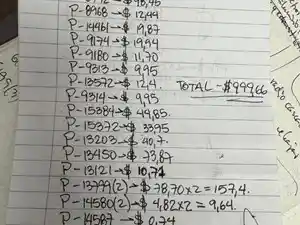 P-8968→$ 12,44
P-14461→$ 19,87
P-9174→$ 19,94
P-9180→$ 11,70
P-9313→$ 9,95
P-13572→$ 12,4.
TOTAL-$999,66
P-9314→$ 9,95
P-15384→$ 49,85.
P-15372→$ 33,95
P-13203→$ 40,7.
P-13450→$ 73,87
P-13121→$ 10,74
P-13799(2)→$ 78,70x2=157,4.
P-14580(2)→$ 4,82x2=9,64.
P-14587→$ 0,74